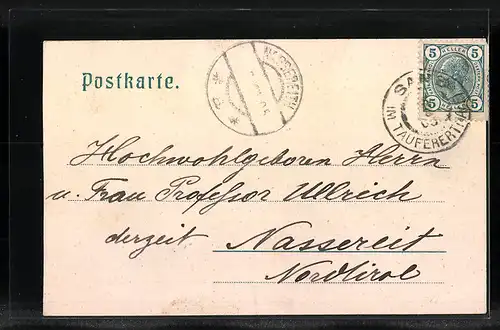 Postkarte.
NASSEREITH
5 HELLER 5
5 5
SAND IM TAUFERERTHAL
Hochwohlgeboren Herrn
u. Frau Professor Ullrich
derzeit Nassereit
Nordtirol